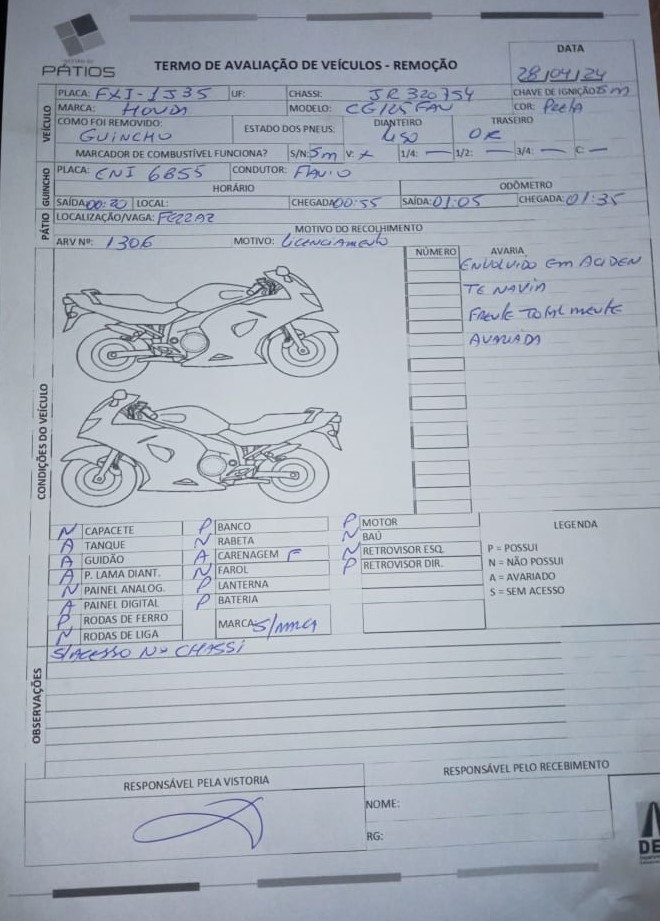 PÁTIOS
TERMO DE AVALIAÇÃO DE VEÍCULOS - REMOÇÃO
DATA
28/04/24
VEÍCULO
PLACA: FXJ-1J35 UF: CHASSI: JR320754 CHAVE DE IGNIÇÃO: Sim
MARCA: HONDA MODELO: CG125 FAN COR: Preta
COMO FOI REMOVIDO: GUINCHO ESTADO DOS PNEUS: DIANTEIRO LISO TRASEIRO OK
MARCADOR DE COMBUSTÍVEL FUNCIONA? S/N: Sim V: x 1/4: — 1/2: — 3/4: — C: —
GUINCHO
PLACA: CNI 6855 CONDUTOR: FLAVIO
HORÁRIO ODÔMETRO
SAÍDA: 00:20 LOCAL: CHEGADA: 00:55 SAÍDA: 01:05 CHEGADA: 01:35
PÁTIO
LOCALIZAÇÃO/VAGA: FERRAZ
MOTIVO DO RECOLHIMENTO
ARV Nº: 1306 MOTIVO: Licenciamento
CONDIÇÕES DO VEÍCULO
NÚMERO AVARIA
ENVOLVIDO EM ACIDEN
TE NA VIA
FRENTE TOTALMENTE
AVARIADA
N CAPACETE P BANCO P MOTOR
A TANQUE N RABETA N BAÚ
A GUIDÃO A CARENAGEM F N RETROVISOR ESQ.
A P. LAMA DIANT. N FAROL P RETROVISOR DIR.
N PAINEL ANALOG. P LANTERNA
A PAINEL DIGITAL P BATERIA
P RODAS DE FERRO MARCA: S/MARCA
N RODAS DE LIGA
LEGENDA
P = POSSUI
N = NÃO POSSUI
A = AVARIADO
S = SEM ACESSO
OBSERVAÇÕES
S/ACESSO No CHASSI
RESPONSÁVEL PELA VISTORIA
RESPONSÁVEL PELO RECEBIMENTO
NOME:
RG:
DE